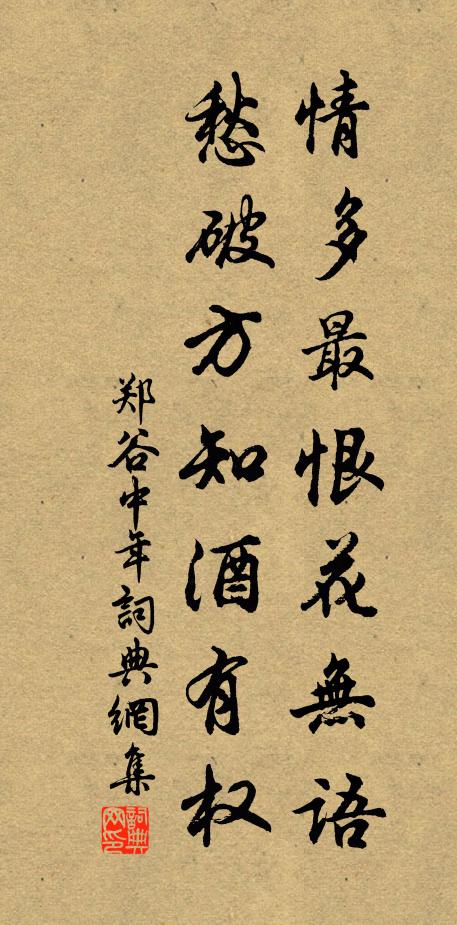 情多最恨花無語
愁破方知酒有权
郑谷中年詞典網集
詞典
网印